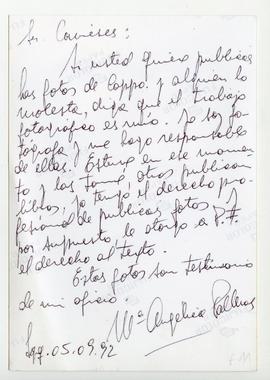 Sr Canieses:
Si usted quiere publicar
las fotos de Cappa y alguien lo
molesta, diga que el trabajo
fotográfico es mío. Yo soy fo-
tógrafa y me hago responsable
de ellas. Estuve en ese momen-
to y las tomé, otros publican
libros, yo tengo el derecho pro-
fesional de publicar fotos y
por supuesto le otorgo a
el derecho al texto.
Estas fotos son testimonio
de mi oficio.
Mª Angélica
05.09.92